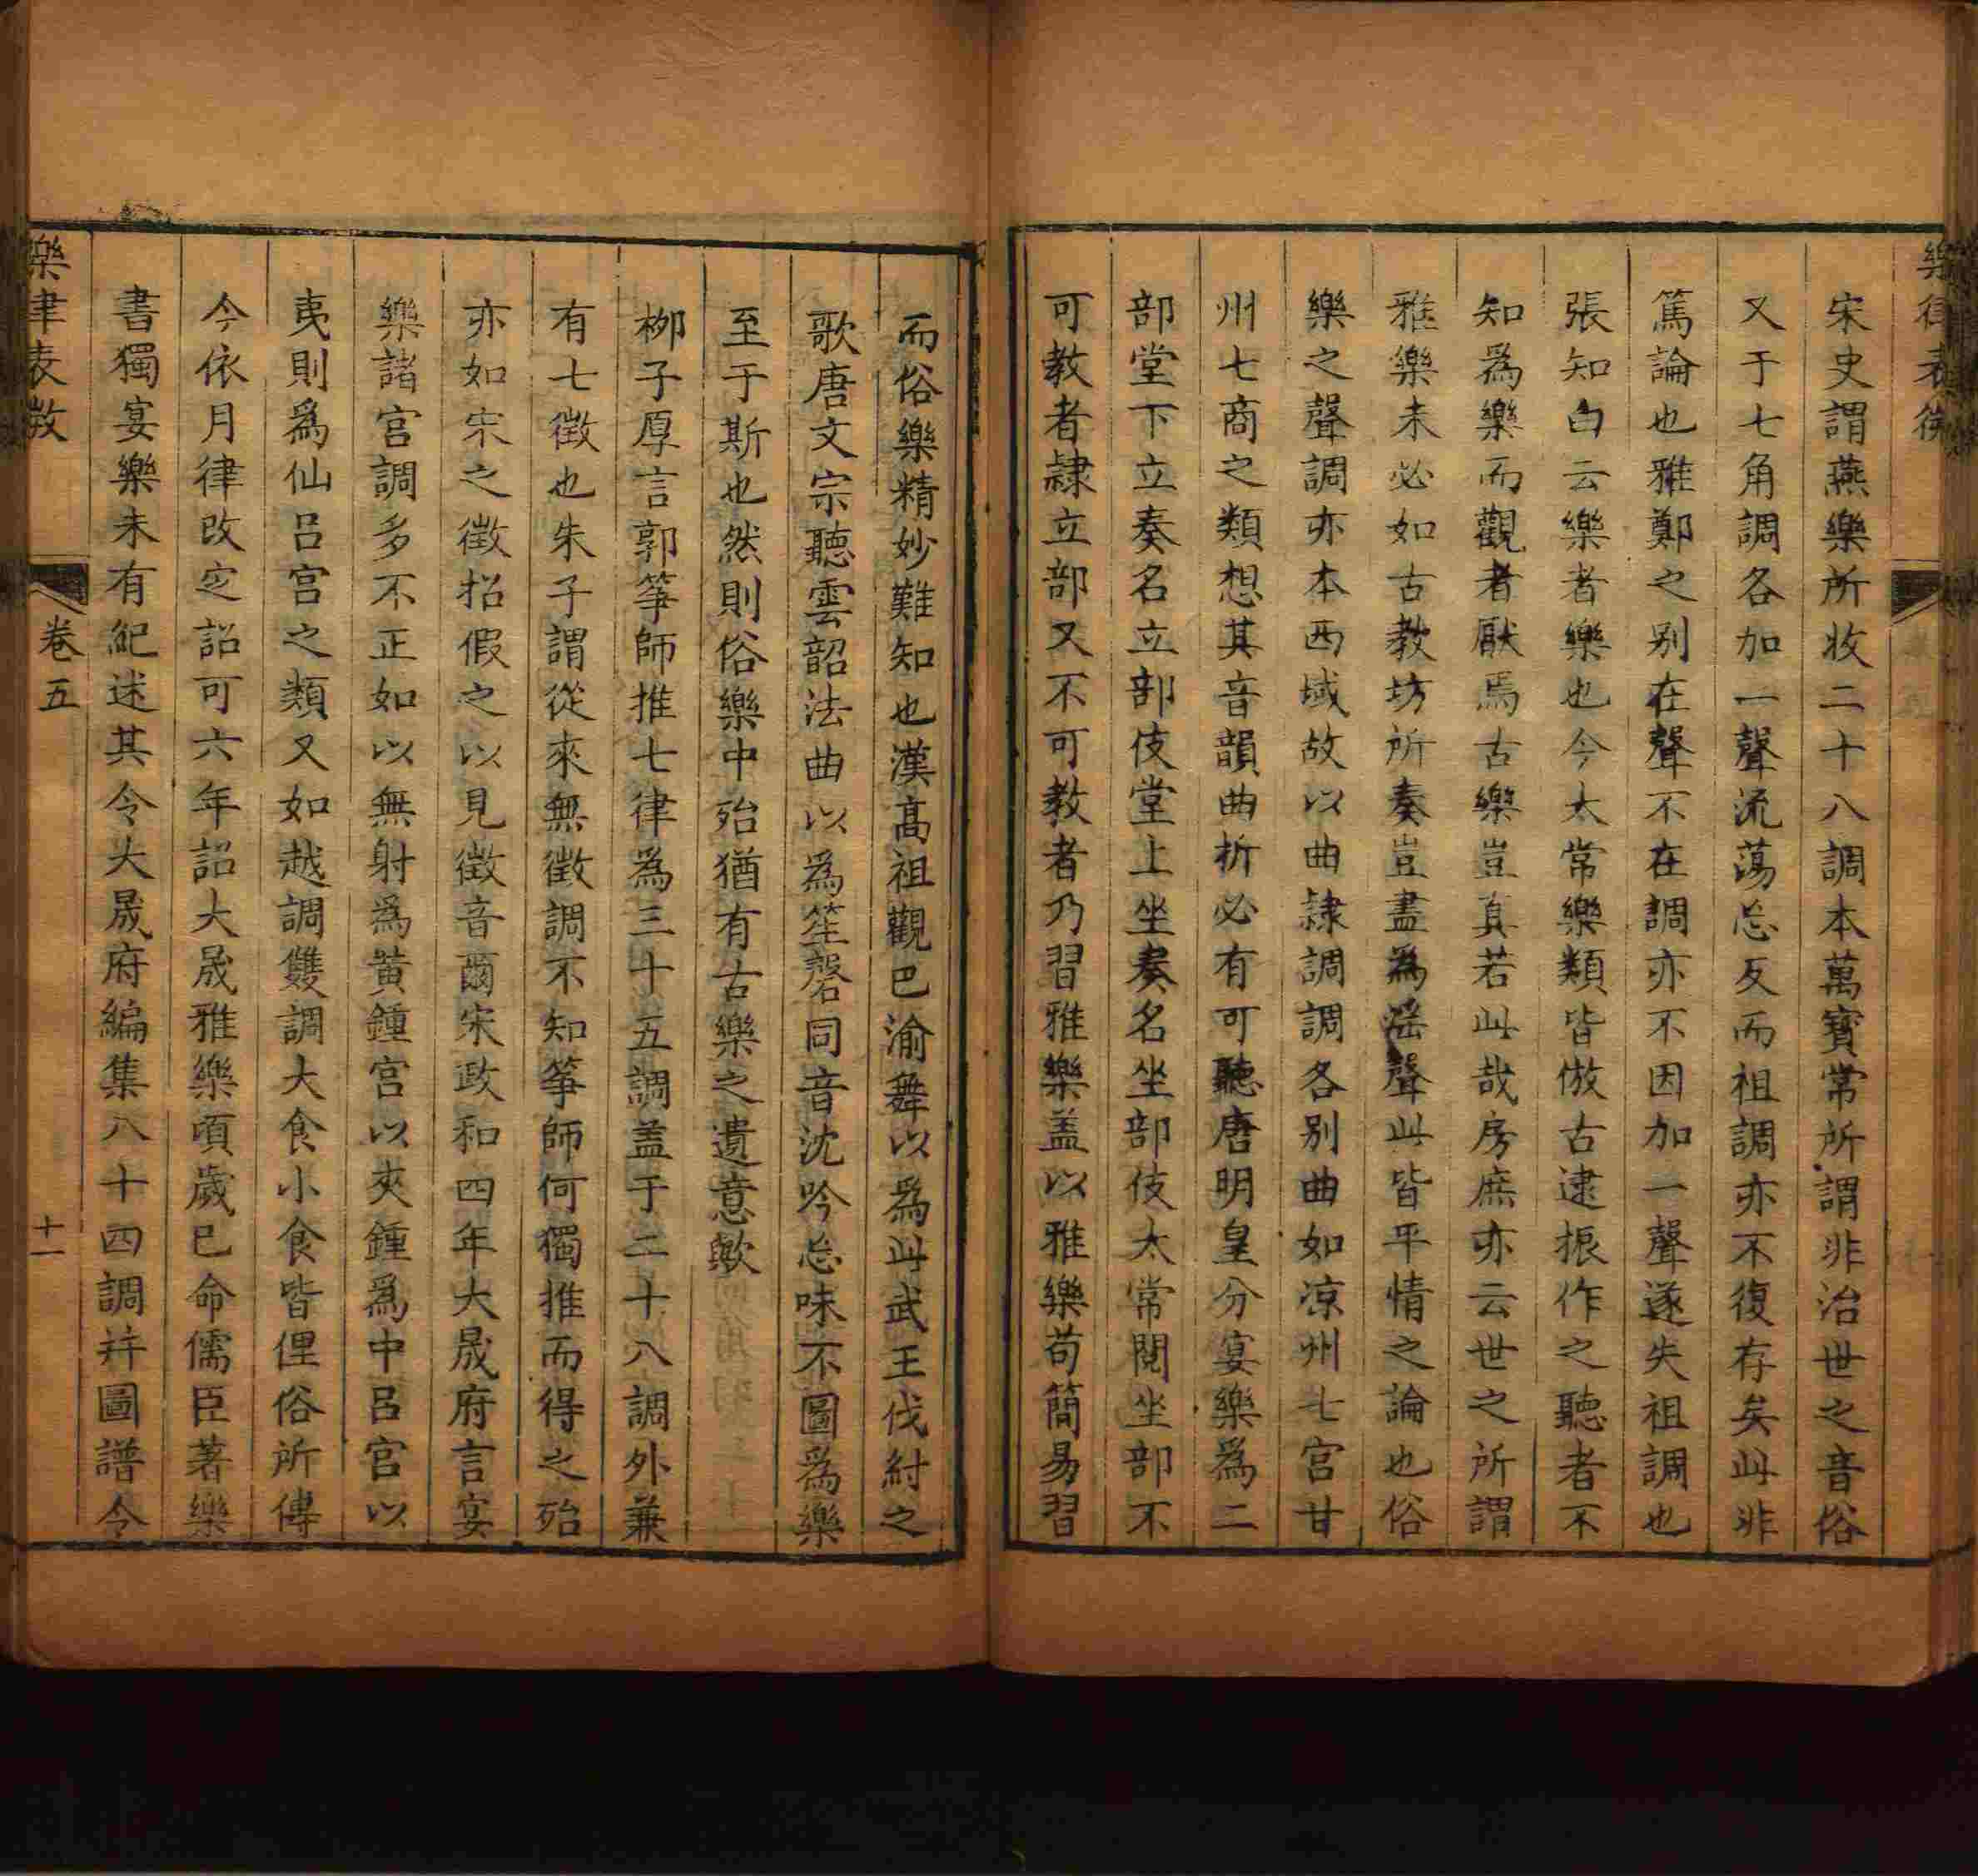 樂律表微
宋史謂燕樂所收二十八調本萬寶常所謂非治世之音俗
又于七角調各加一聲流蕩忘反而祖調亦不復存矣此非
篤論也雅鄭之别在聲不在調亦不因加一聲遂失祖調也
張知白云樂者樂也今太常樂類皆倣古逮振作之聽者不
知爲樂而觀者厭焉古樂豈真若此哉房庶亦云世之所謂
雅樂未必如古教坊所奏豈盡爲滛聲此皆平情之論也俗
樂之聲調亦本西域故以曲隷調調各别曲如凉州七宫甘
州七商之類想其音韻曲折必有可聽唐明皇分宴樂爲二
部堂下立奏名立部伎堂上坐奏名坐部伎太常閲坐部不
可教者隷立部又不可教者乃習雅樂盖以雅樂苟簡易習
而俗樂精妙難知也漢髙祖觀巴渝舞以爲此武王伐紂之
歌唐文宗聽雲韶法曲以爲笙磬同音沈吟忘味不圖爲樂
至于斯也然則俗樂中殆猶有古樂之遺意歟
栁子厚言郭筝師推七律爲三十五調盖于二十八調外兼
有七徵也朱子謂從來無徵調不知筝師何獨推而得之殆
亦如宋之徵招假之以見徵音爾宋政和四年大晟府言宴
樂諸宫調多不正如以無射爲黄鍾宫以夾鍾爲中吕宫以
夷則爲仙吕宫之類又如越調雙調大食小食皆俚俗所傳
今依月律改㝎詔可六年詔大晟雅樂頃歲已命儒臣著樂
書獨宴樂未有紀述其令大晟府編集八十四調幷圖譜令
樂律表微
卷五
十一